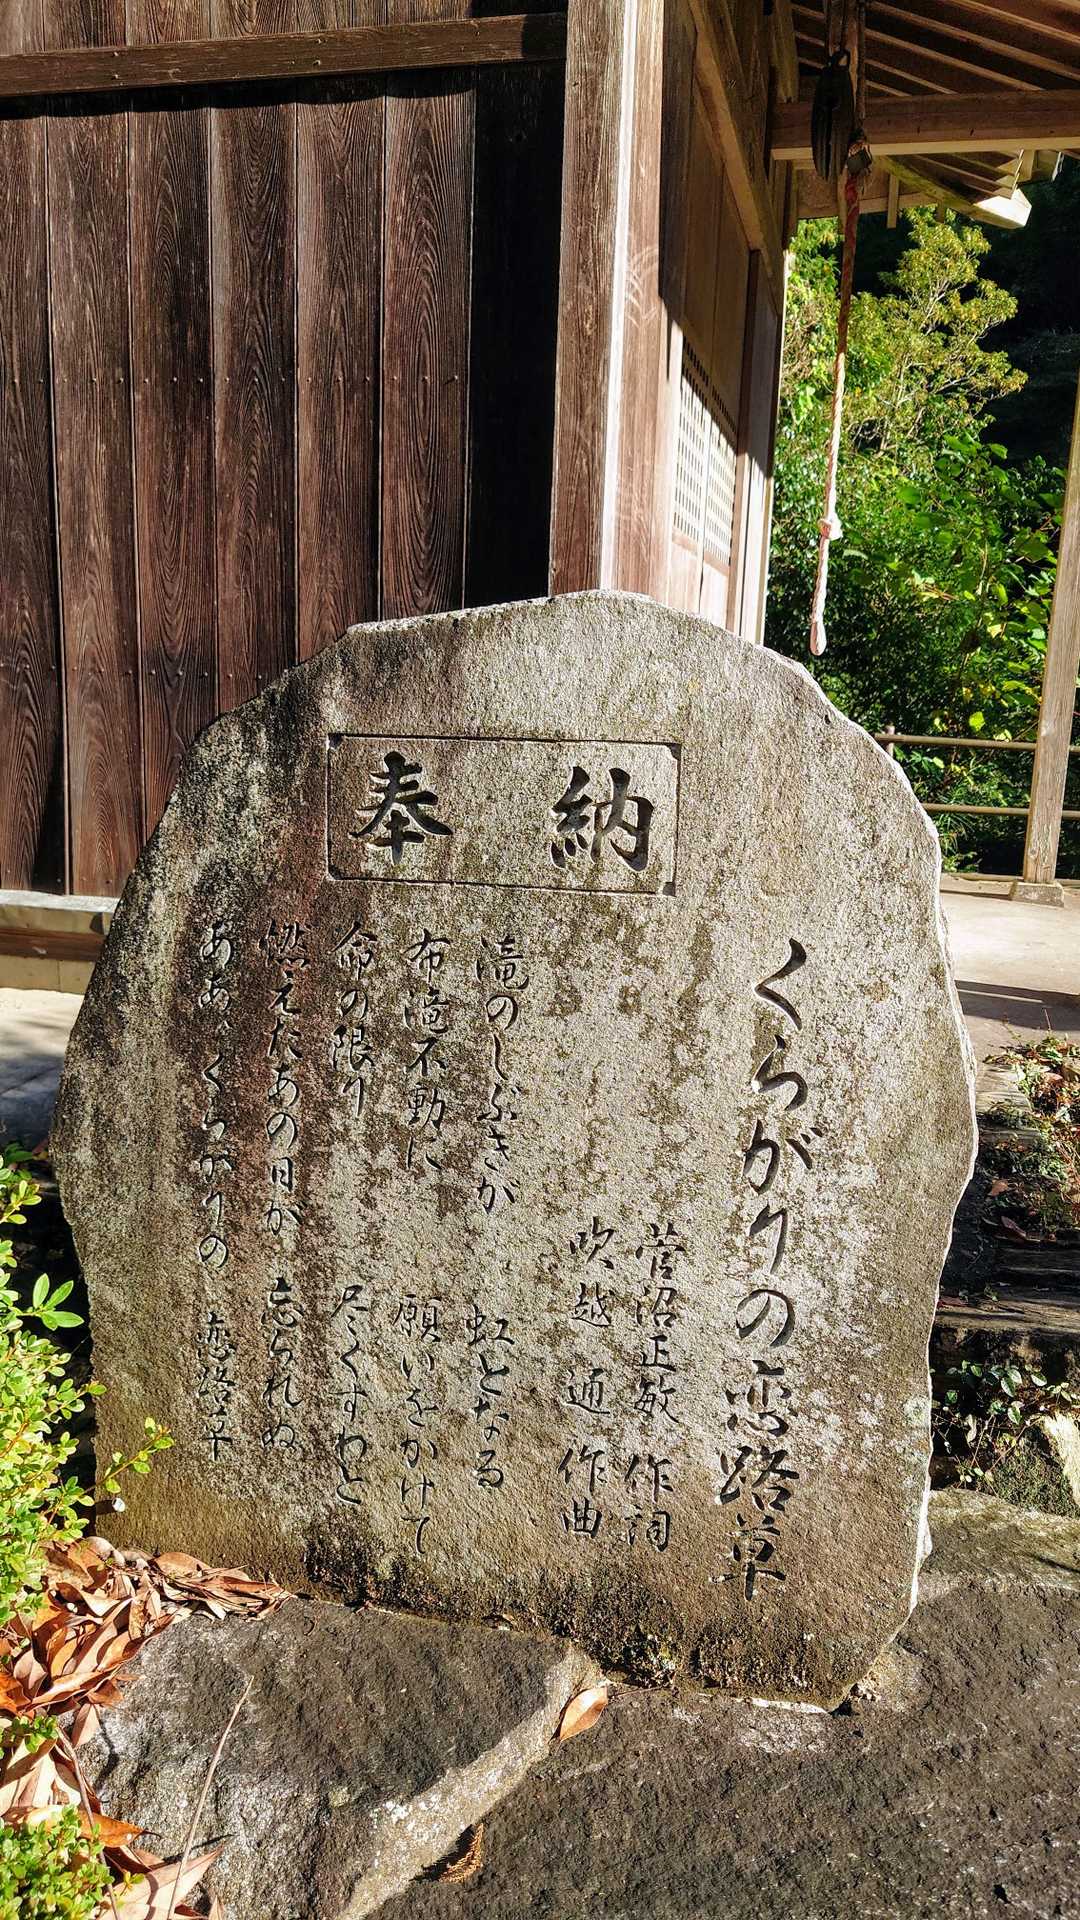 奉納
くらがりの恋路草
菅沼正敏 作詞
吹越 通 作曲
滝のしぶきが 虹となる
布滝不動に 願いをかけて
命の限り 尽くすわと
燃えたあの日が 忘られぬ
ああ、くらがりの 恋路草